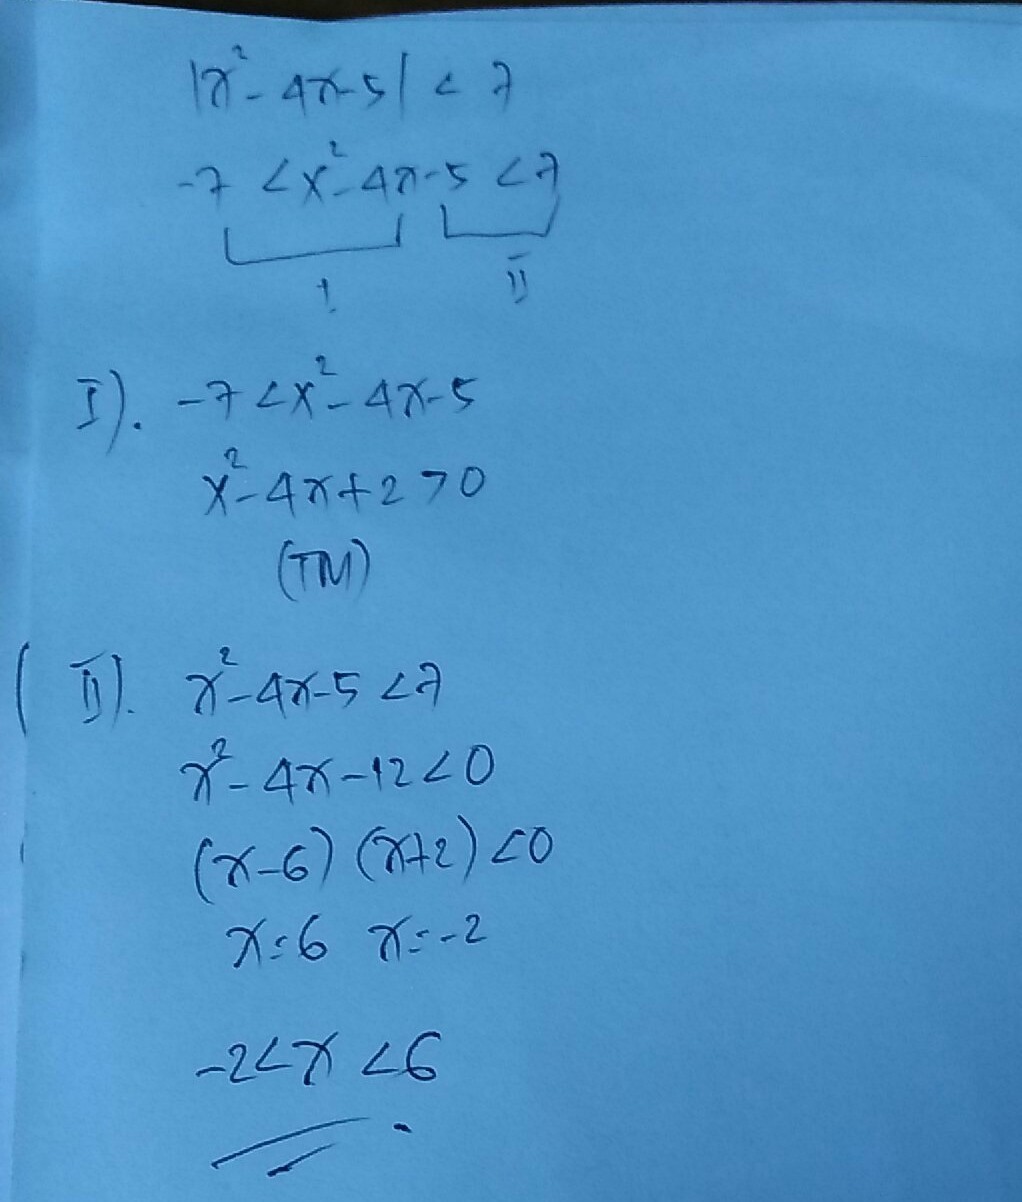 |x²-4x-5| < 7
-7 < x²-4x-5 < 7
I II
I). -7 < x²-4x-5
x²-4x+2 > 0
(TM)
II). x²-4x-5 < 7
x²-4x-12 < 0
(x-6) (x+2) < 0
x=6 x=-2
-2 < x < 6